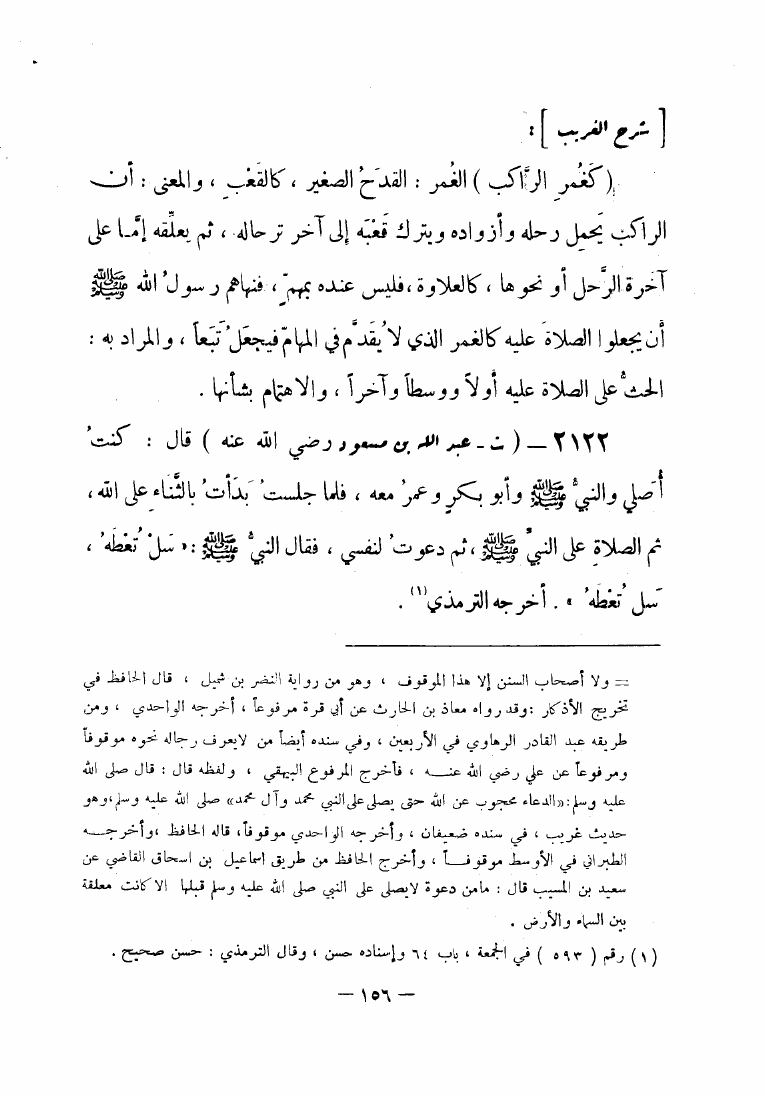 [ شرح الغريب ] :
( كَغُمرِ الرَّاكب ) الغُمر : القدَحُ الصغير ، كالقَعْبِ ، والمعنى : أن
الراكبَ يَحمِل رحله وأزواده ويترك قَعْبَه إلى آخر ترحاله ، ثم يعلِّقه إمَّا على
آخرة الرَّحل أو نحوها ، كالعلاوة ، فليس عنده بمهمّ ، فنهاهم رسولُ الله ﷺ
أن يجعلوا الصلاةَ عليه كالغمر الذي لا يُقدَّم في المهامّ فيجعَلُ تَبَعاً ، والمراد به :
الحثُّ على الصلاة عليه أولاً ووسطاً وآخراً ، والاهتمام بشأنها .
٢١٢٢ – ( ت - عبد الله بن مسعود رضي الله عنه ) قال : كنتُ
أصلي والنبيُّ ﷺ وأبو بكرٍ وعمرُ معه ، فلما جلستُ بَدَأتُ بالثَّناءِ على الله ،
ثم الصلاةِ على النبيِّ ﷺ ، ثم دعوتُ لنفسي ، فقال النبيُّ ﷺ : « سَلْ تُعْطَهُ ،
سَل تُعْطَهُ » . أخرجه الترمذي (١) .
= ولا أصحاب السنن إلا هذا الموقوف ، وهو من رواية النضر بن شميل ، قال الحافظ في
تخريج الأذكار : وقد رواه معاذ بن الحارث عن أبي قرة مرفوعاً ، أخرجه الواحدي ، ومن
طريقه عبد القادر الرهاوي في الأربعين ، وفي سنده أيضاً من لايعرف رجاله نحوه موقوفاً
ومرفوعاً عن علي رضي الله عنه ، فأخرج المرفوع البيهقي ، ولفظه قال : قال صلى الله
عليه وسلم : «الدعاء محجوب عن الله حتى يصلى على النبي محمد وآل محمد» صلى الله عليه وسلم ، وهو
حديث غريب ، في سنده ضعيفان ، وأخرجه الواحدي موقوفاً ، قاله الحافظ ، وأخرجه
الطبراني في الأوسط موقوفاً ، وأخرج الحافظ من طريق اسماعيل بن اسحاق القاضي عن
سعيد بن المسيب قال : مامن دعوة لايصلى على النبي صلى الله عليه وسلم قبلها الا كانت معلقة
بين السماء والأرض .
(١) رقم ( ٥٩٣ ) في الجمعة ، باب ٦٤ وإسناده حسن ، وقال الترمذي : حسن صحيح .
– ١٥٦ –